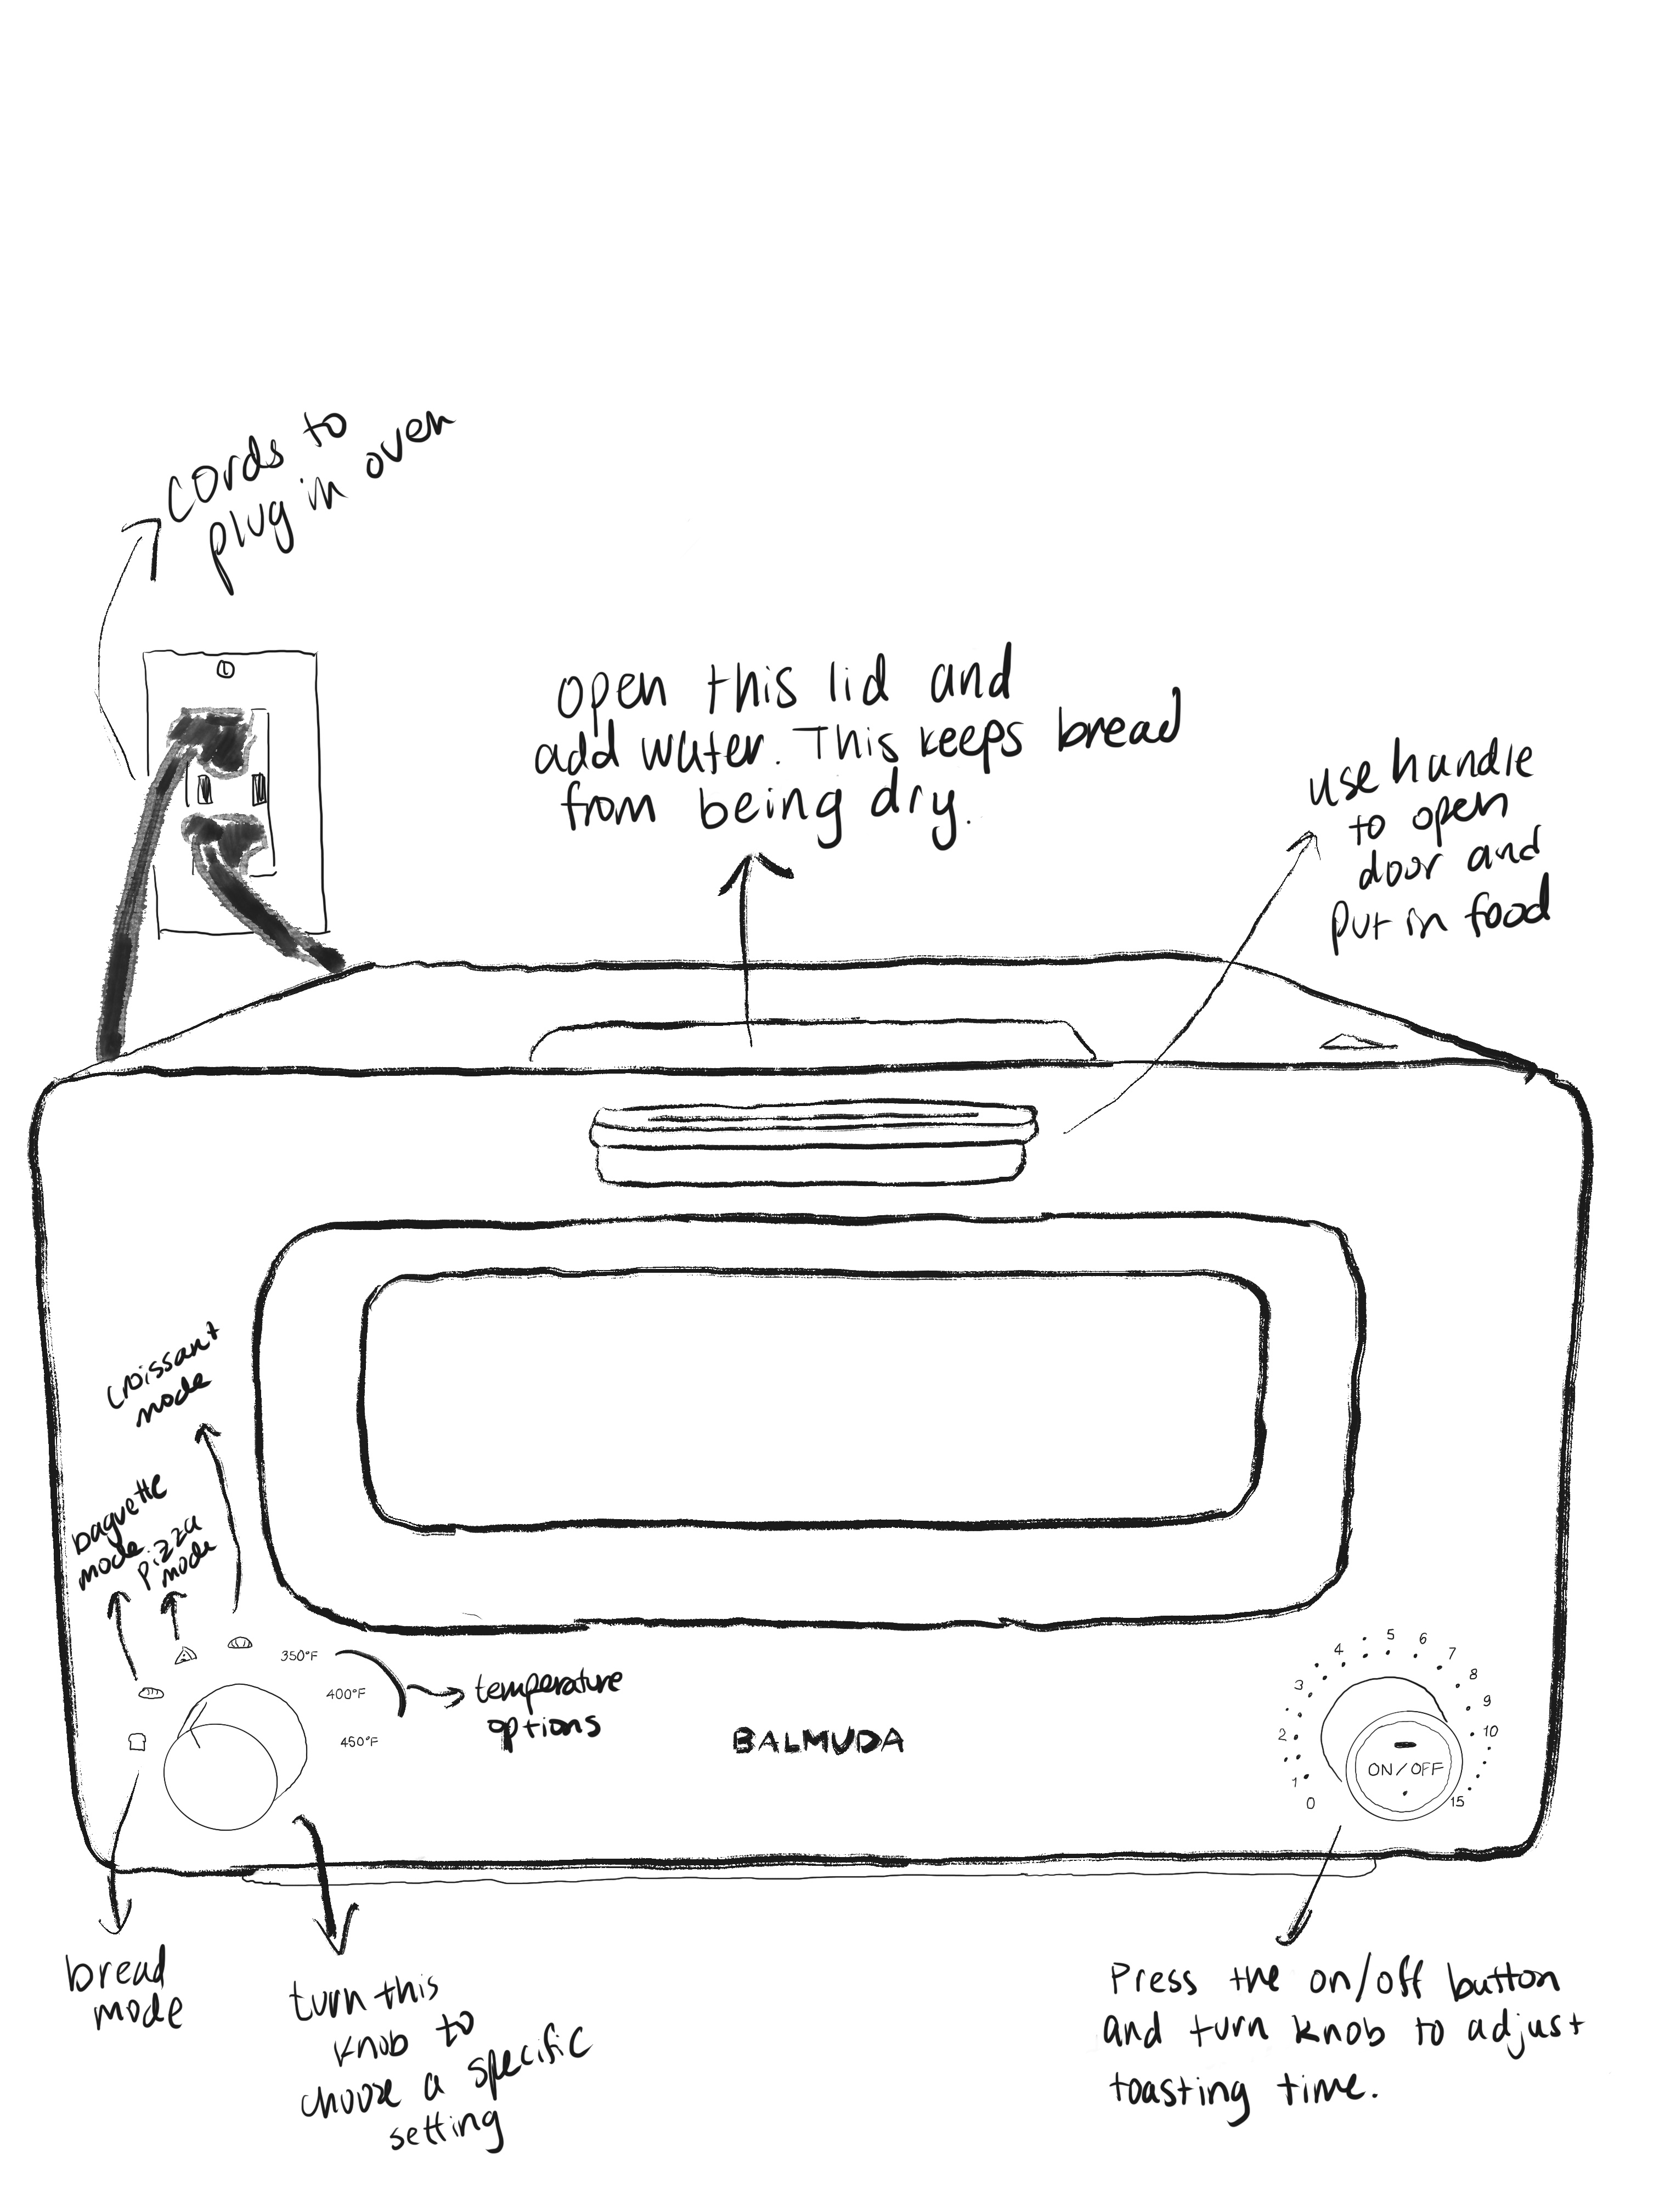 cords to
plug in oven
open this lid and
add water. This keeps bread
from being dry.
use handle
to open
door and
put in food
croissant
mode
baguette
mode
pizza
mode
350°F
400°F
450°F
temperature
options
BALMUDA
0
1
2
3
4
5
6
7
8
9
10
15
ON/OFF
bread
mode
turn this
knob to
choose a specific
setting
Press the on/off button
and turn knob to adjust
toasting time.